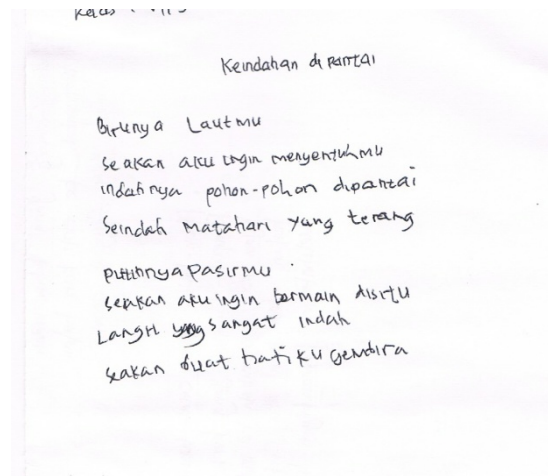 Kelas
Keindahan di pantai
Birunya Lautmu
Seakan aku ingin menyentuhmu
indahnya pohon-pohon dipantai
Seindah Matahari yang terang
putihnya pasirmu
seakan aku ingin bermain disitu
Langit yang sangat indah
seakan buat hatiku gembira